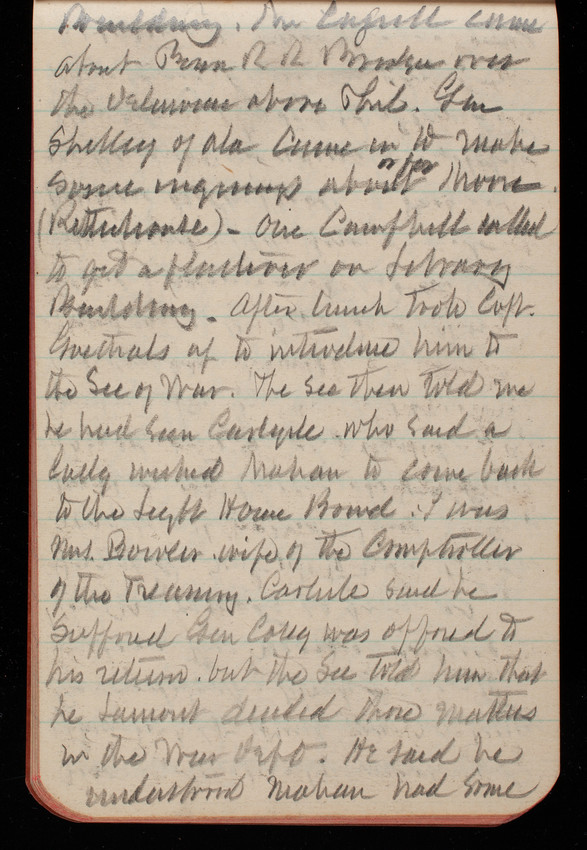 Building. Mr Cogswell came
about Penn R R Bridge over
the Delaware above Phil. Gen
Shelley of Ala Came in to make
some inquiry about or for Moore.
(Rittenhouse) - One Campbell called
to get a position on Library
Building - After lunch took Capt.
Goethals up to introduce him to
the Sec of War. The Sec then told me
he had seen Carlisle. who said a
lady wished Mahan to come back
to the Light House Board. It was
Mrs. Bowler wife of the Comptroller
of the Treasury. Carlisle said he
supposed Gen Casey was opposed to
his return. but the Sec told him that
he Lamont decided those matters
in the War Dept. He said he
understood Mahan had some